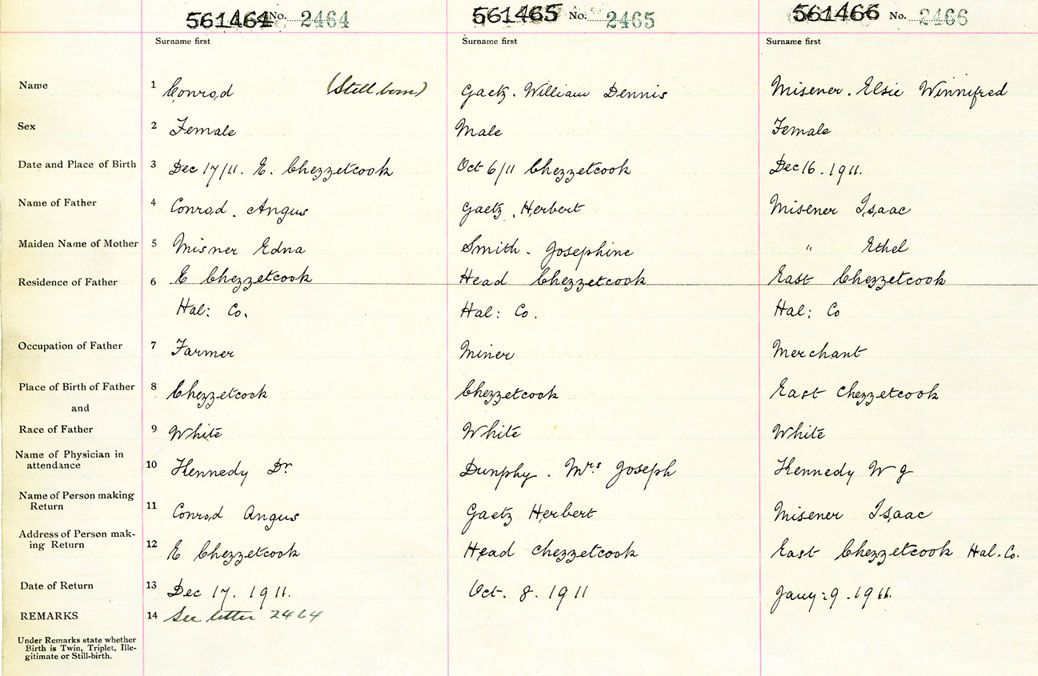 561464 No. 2464 561465 No. 2465 561466 No. 2466
Surname first Surname first Surname first
Name 1 Conrad (Still born) Gaetz. William Dennis Misener. Elsie Winnifred
Sex 2 Female Male Female
Date and Place of Birth 3 Dec 17/11. E. Chezzetcook Oct 6/11 Chezzetcook Dec 16. 1911.
Name of Father 4 Conrad. Angus Gaetz, Herbert Misener Isaac
Maiden Name of Mother 5 Misner Edna Smith. Josephine " Ethel
Residence of Father 6 E Chezzetcook Head Chezzetcook East Chezzetcook
Hal: Co. Hal: Co. Hal: Co
Occupation of Father 7 Farmer Miner Merchant
Place of Birth of Father 8 Chezzetcook Chezzetcook East Chezzetcook
and
Race of Father 9 White White White
Name of Physician in
attendance 10 Kennedy Dr. Dunphy. Mrs Joseph Kennedy W G
Name of Person making
Return 11 Conrad Angus Gaetz Herbert Misener Isaac
Address of Person mak-
ing Return 12 E Chezzetcook Head Chezzetcook East Chezzetcook Hal. Co.
Date of Return 13 Dec 17. 1911. Oct. 8. 1911 Jany: 9.
REMARKS 14 See letter 2464
Under Remarks state whether
Birth is Twin, Triplet, Ille-
gitimate or Still-birth.